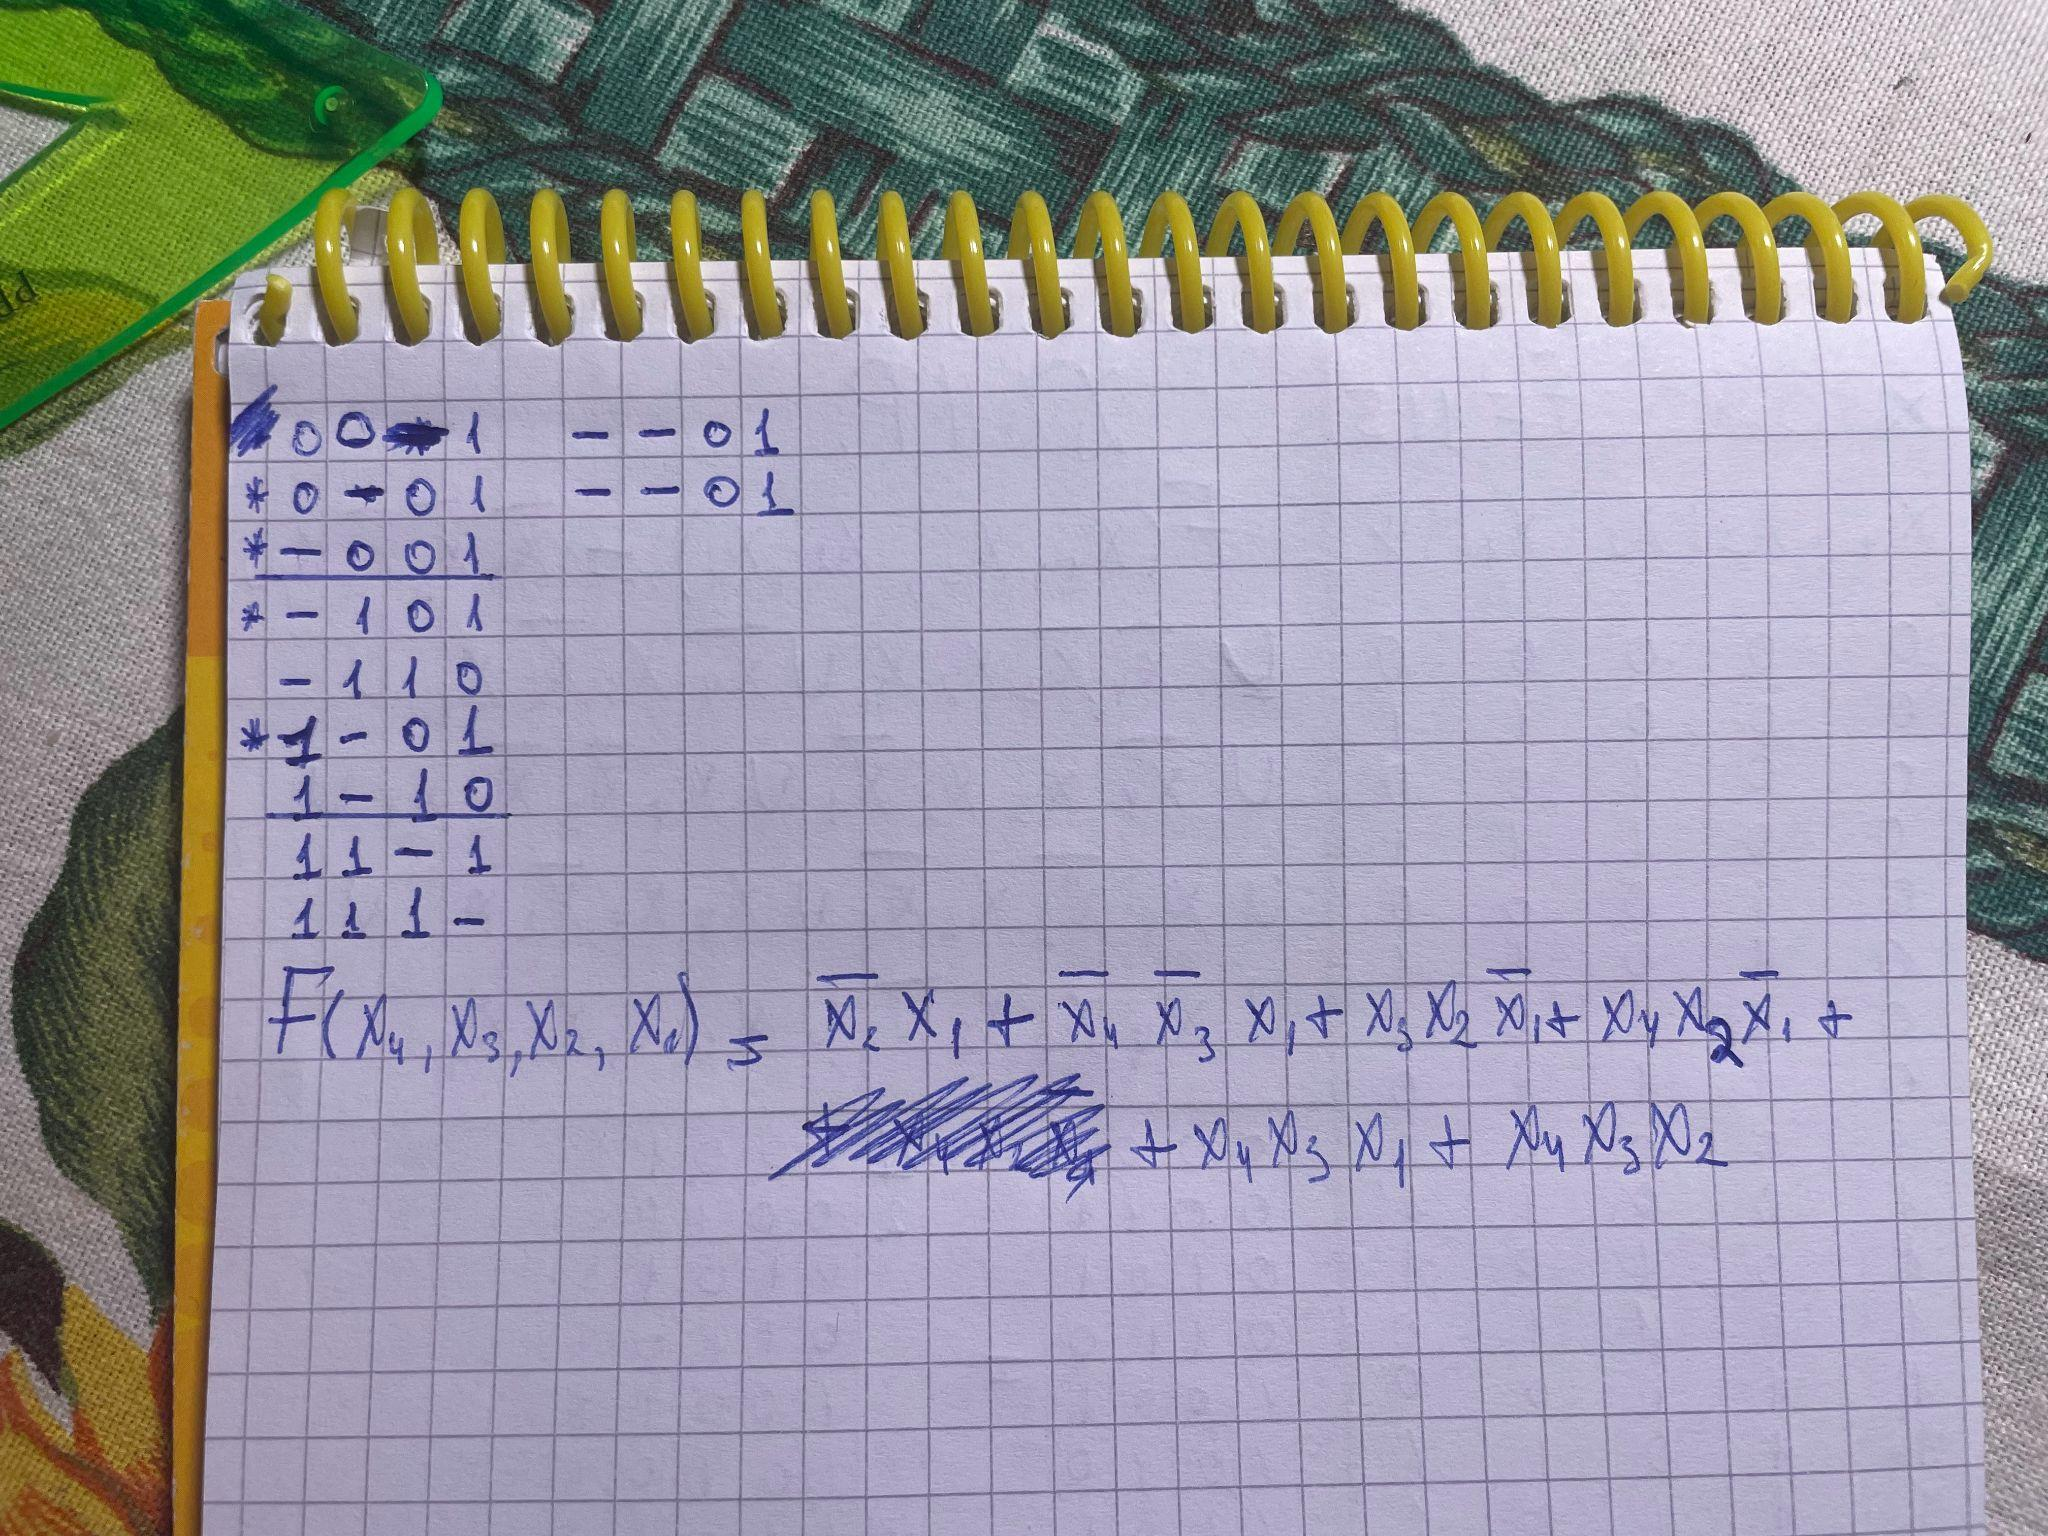 0 0 - 1 - - 0 1
* 0 - 0 1 - - 0 1
* - 0 0 1
* - 1 0 1
- 1 1 0
* 1 - 0 1
1 - 1 0
1 1 - 1
1 1 1 -
F(x₄, x₃, x₂, x₁) = x̅₂ x₁ + x̅₄ x̅₃ x₁ + x₃ x₂ x̅₁ + x₄ x₂ x̅₁ +
+ x₄ x₃ x₁ + x₄ x₃ x₂